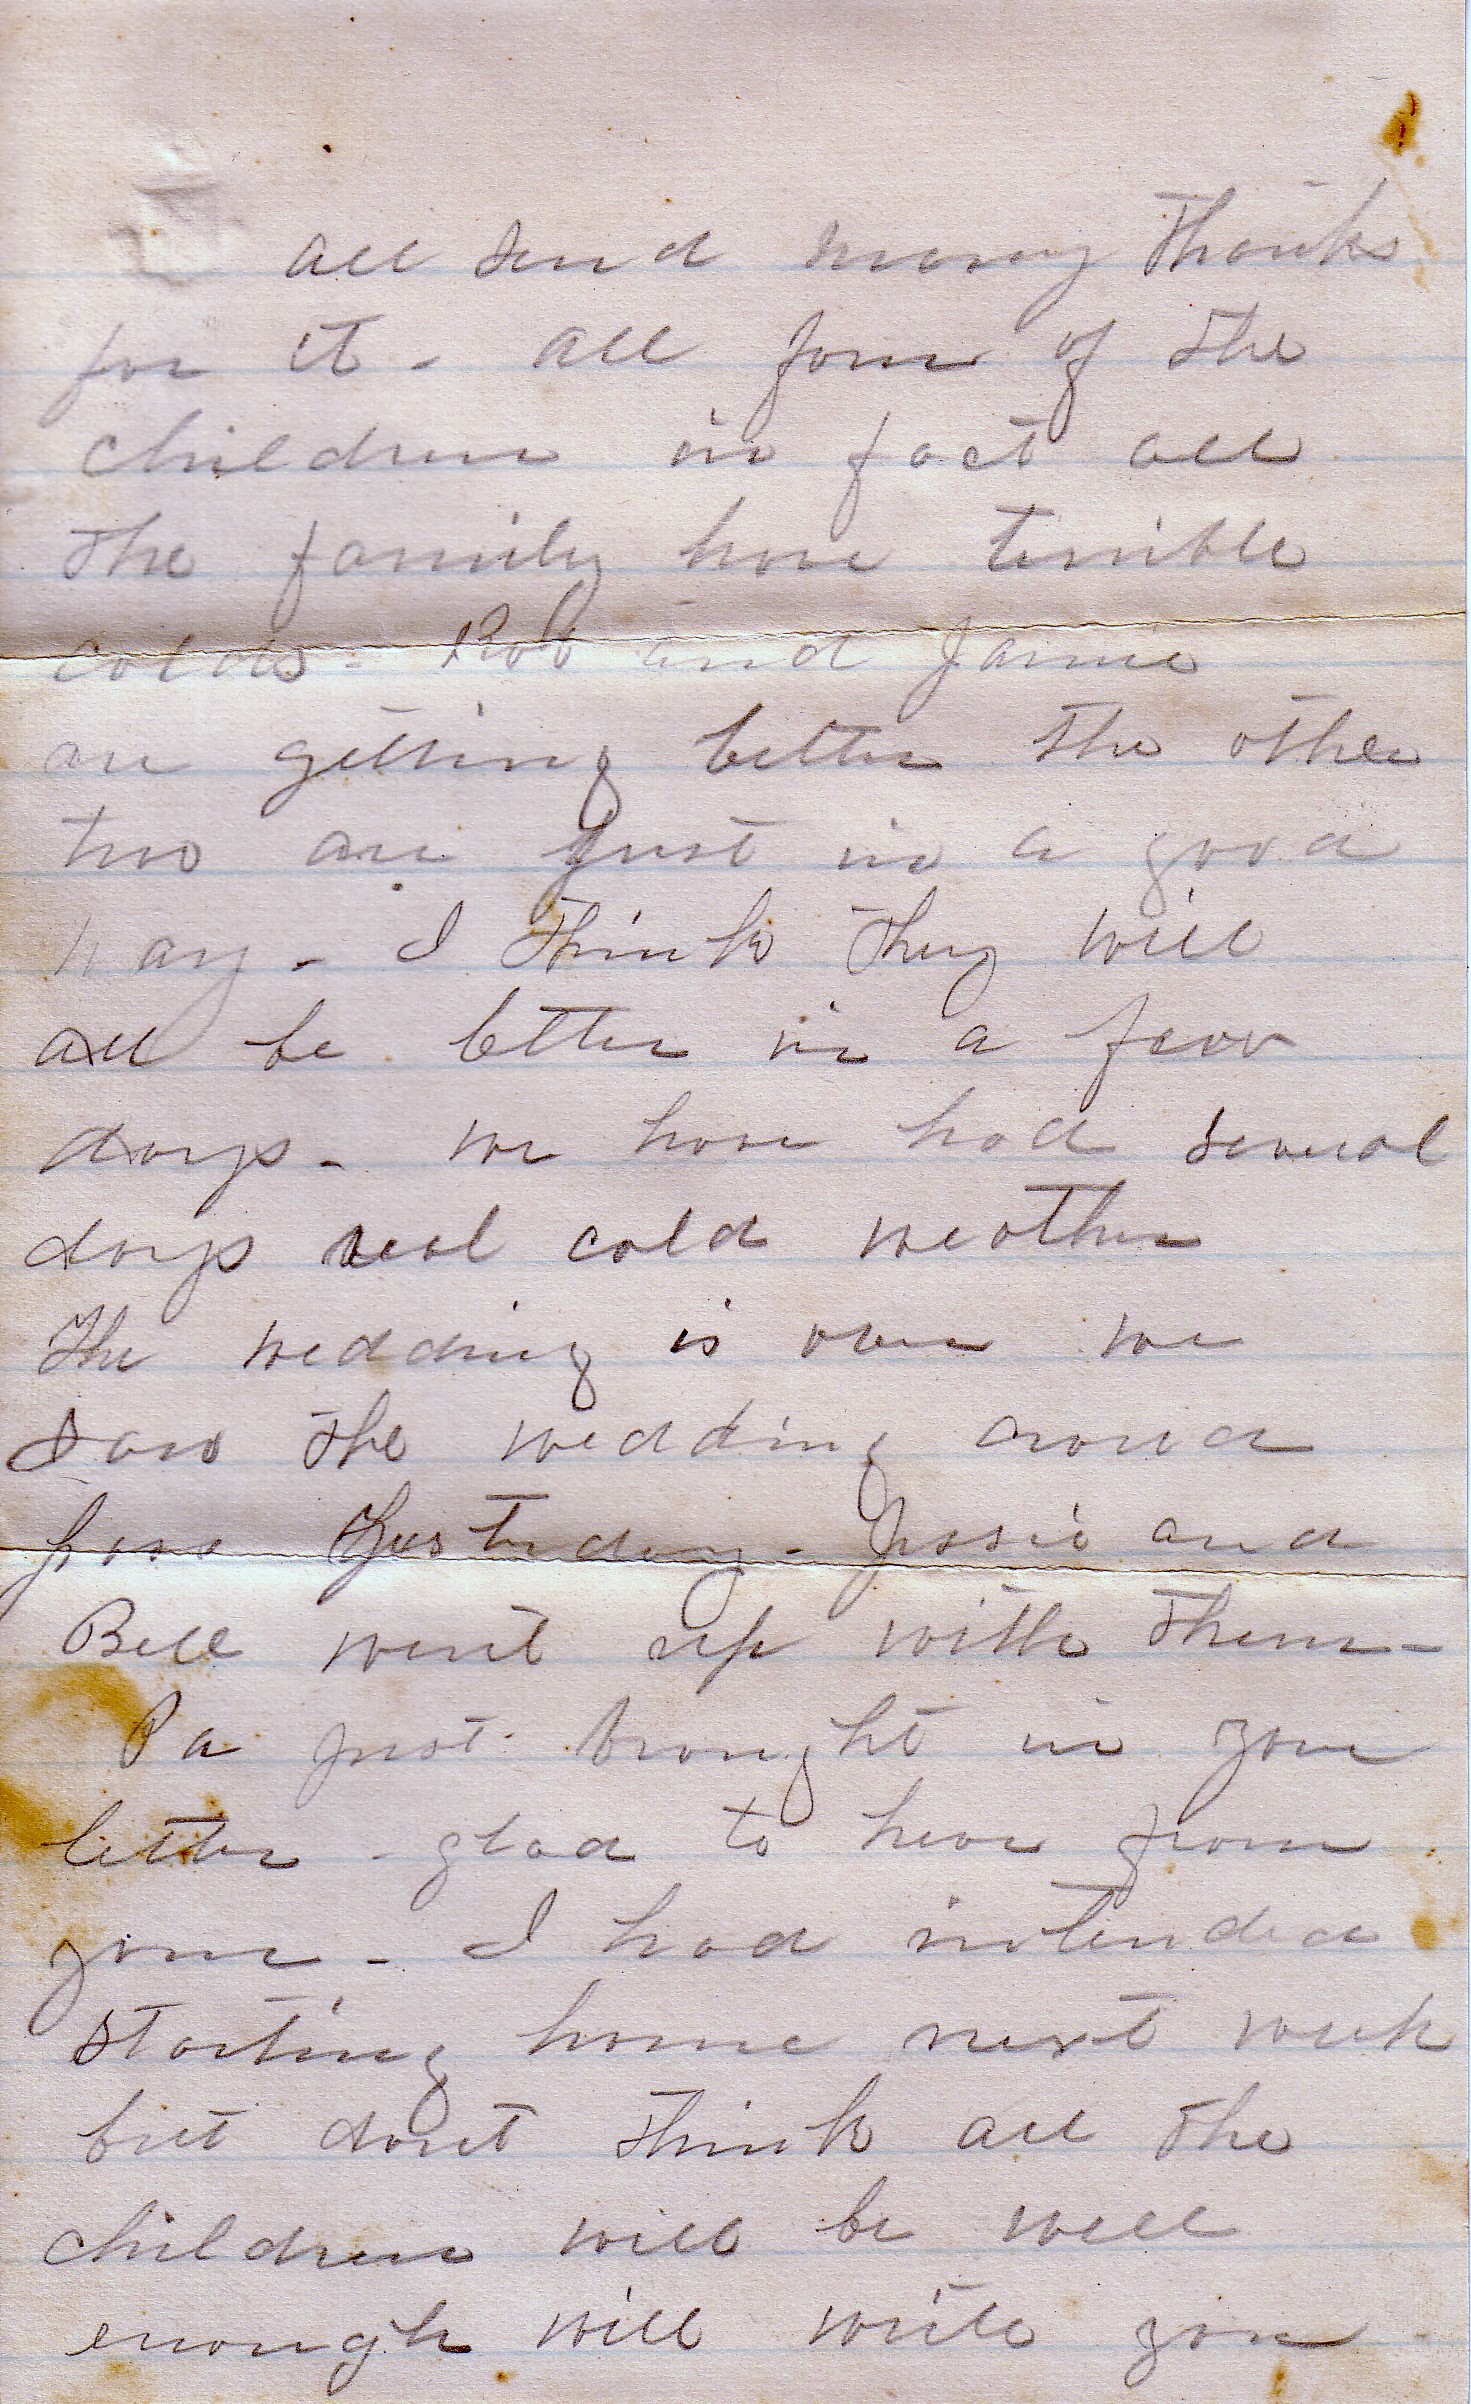 all send many thanks
for it - all four of the
children in fact all
the family have terrible
colds - Rob and Jamie
are getting better the other
two are just in a good
way - I think they will
all be better in a few
days - we have had several
days real cold weather
The wedding is over we
saw the wedding crowd
pass Yesterday - Jessie and
Bell went up with them -
Pa just brought in your
letter - glad to hear from
you - I had intended
starting home next week
but dont think all the
children will be well
enough will write you